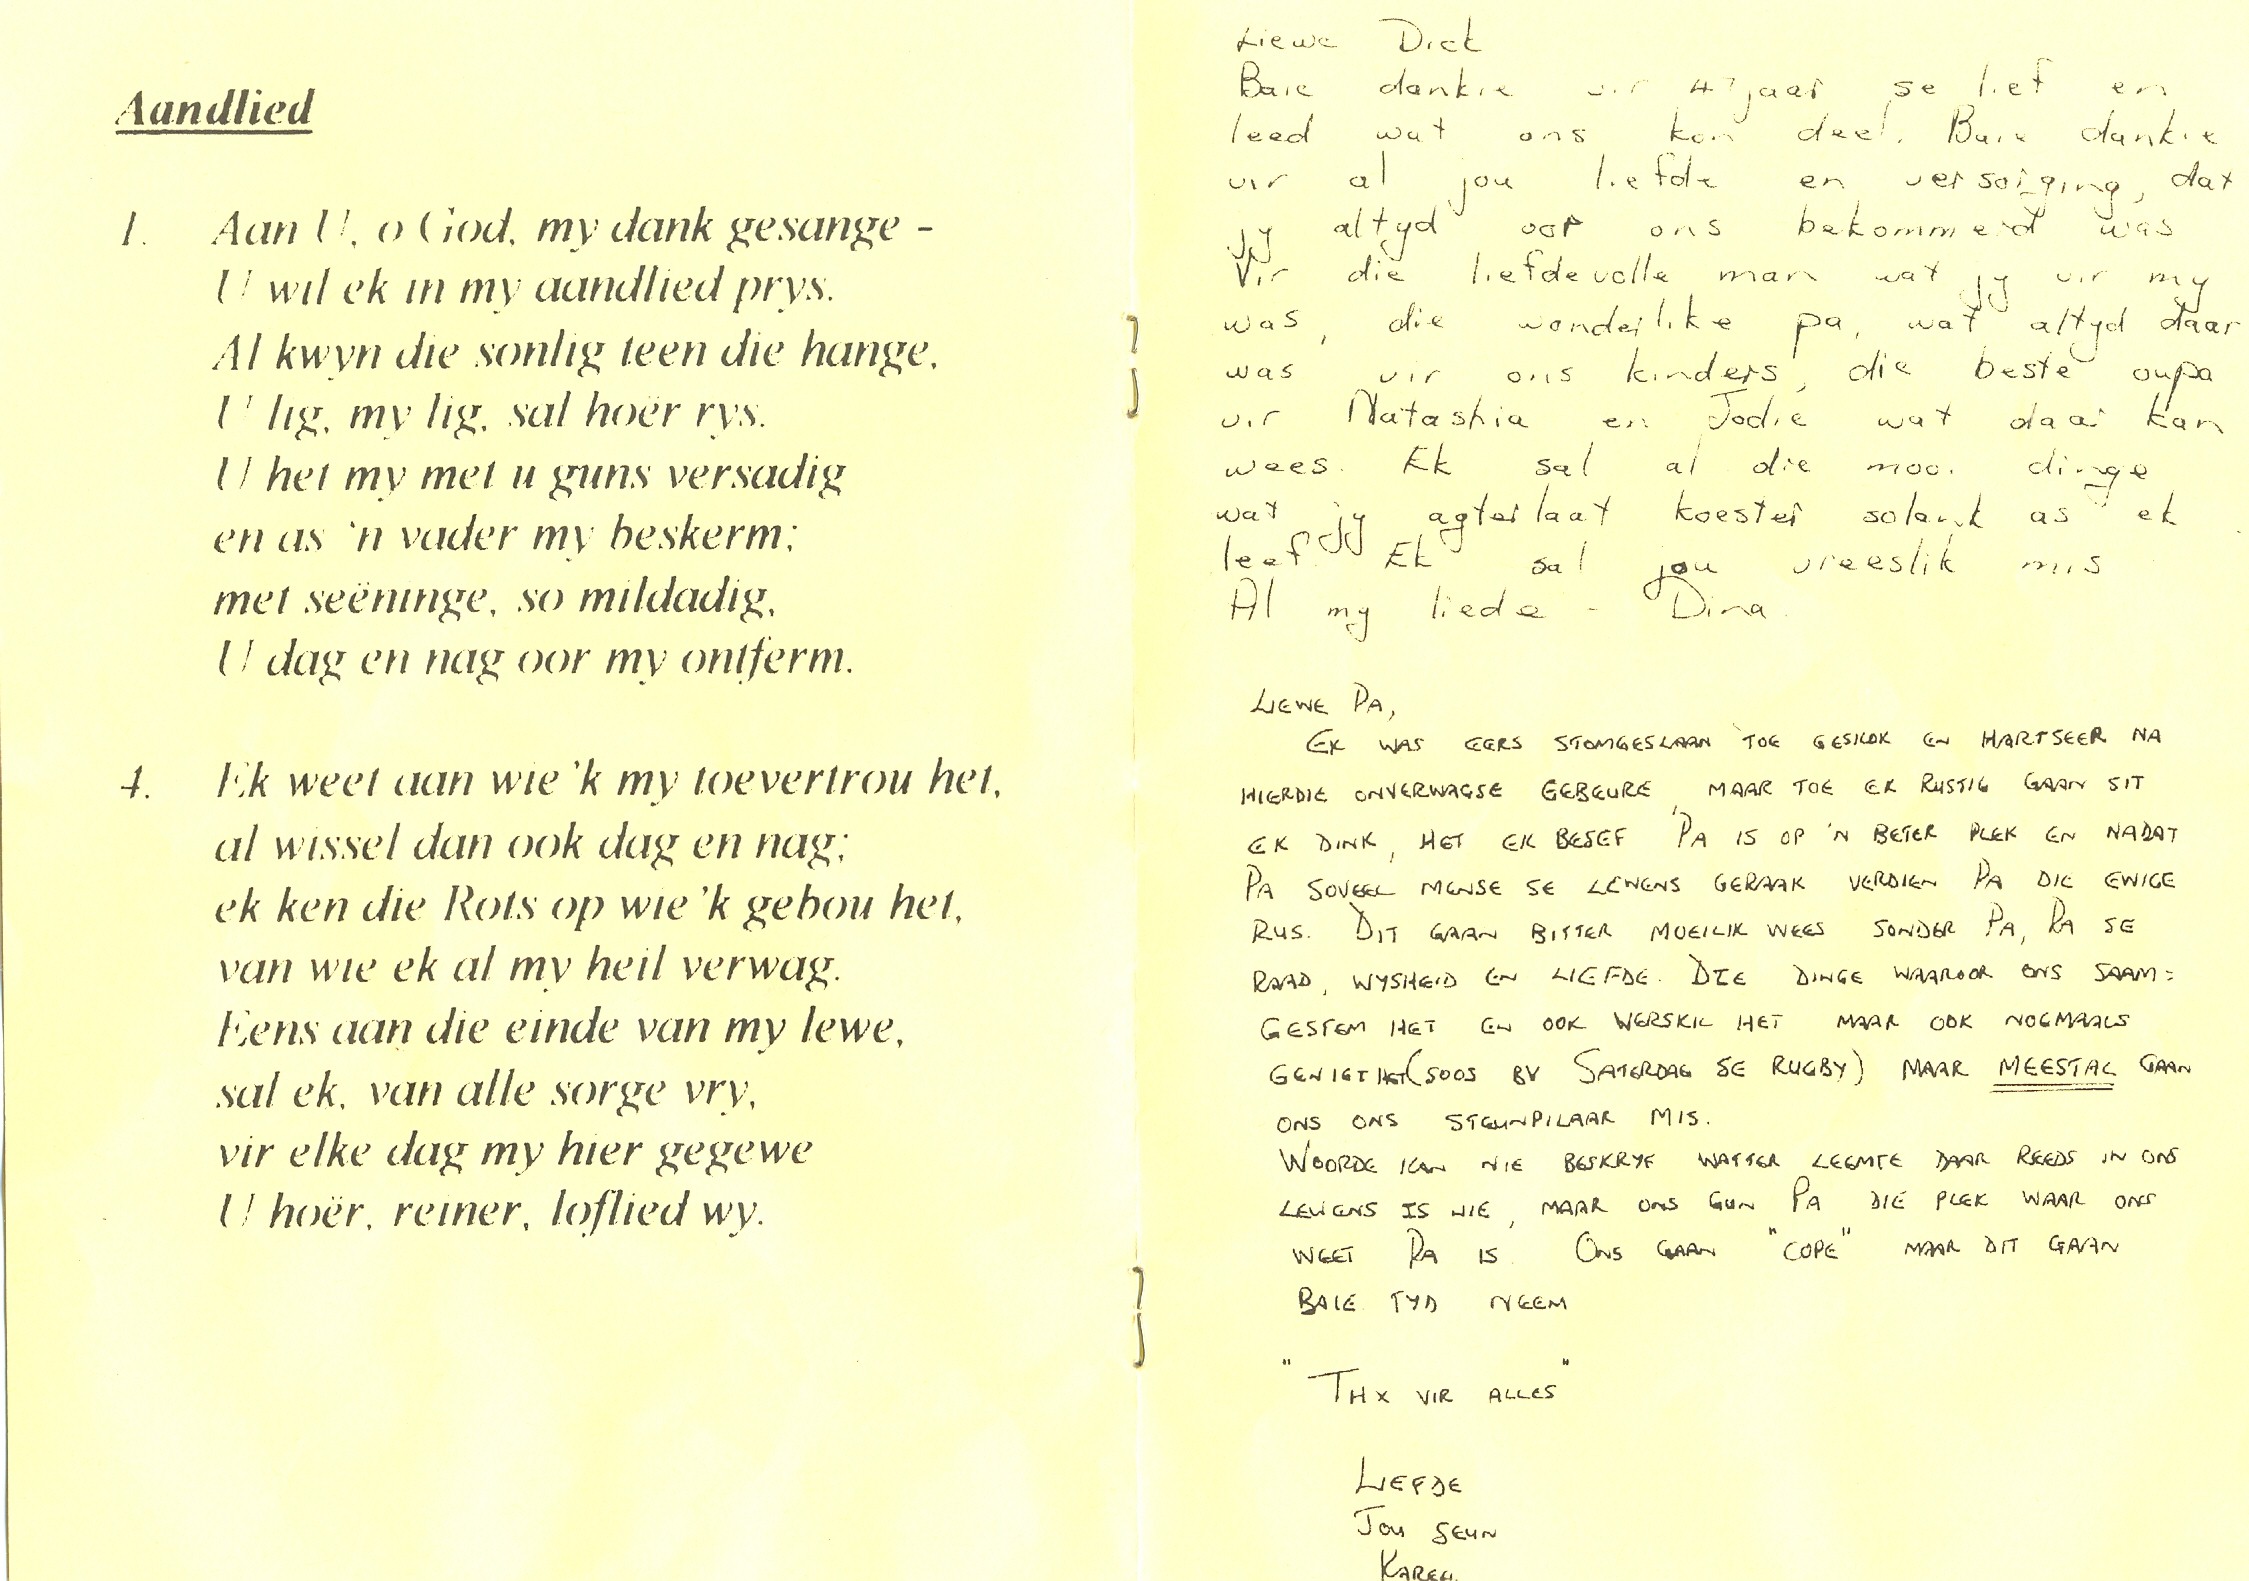 Aandlied
1. Aan U, o God, my dank gesange -
U wil ek in my aandlied prys.
Al kwyn die sonlig teen die hange,
U lig, my lig, sal hoër rys.
U het my met u guns versadig
en as 'n vader my beskerm;
met seëninge, so mildadig,
U dag en nag oor my ontferm.
4. Ek weet aan wie 'k my toevertrou het,
al wissel dan ook dag en nag;
ek ken die Rots op wie 'k gebou het,
van wie ek al my heil verwag.
Eens aan die einde van my lewe,
sal ek, van alle sorge vry,
vir elke dag my hier gegewe
U hoër, reiner, loflied wy.
Liewe Dick
Baie dankie vir 47 jaar se lief en
leed wat ons kon deel. Baie dankie
vir al jou liefde en versorging, dat
jy altyd oor ons bekommerd was
Vir die liefdevolle man wat jy vir my
was, die wonderlike pa, wat altyd daar
was vir ons kinders, die beste oupa
vir Natashia en Jodie wat daar kan
wees. Ek sal al die mooi dinge
wat jy agterlaat koester solank as ek
leef. Ek sal jou vreeslik mis
Al my liede - Dina.
LIEWE PA,
EK WAS EERS STOMGESLAAN TOE GESKOK EN HARTSEER NA
HIERDIE ONVERWAGSE GEBEURE, MAAR TOE EK RUSTIG GAAN SIT
EK DINK, HET EK BESEF PA IS OP 'N BETER PLEK EN NADAT
PA SOVEEL MENSE SE LEWENS GERAAK VERDIEN PA DIE EWIGE
RUS. DIT GAAN BITTER MOEILIK WEES SONDER PA, PA SE
RAAD, WYSHEID EN LIEFDE. DIE DINGE WAAROOR ONS SAAM=
GESTEM HET EN OOK VERSKIL HET MAAR OOK NOGMAALS
GENIET HET (SOOS BV SATERDAG SE RUGBY) MAAR MEESTAL GAAN
ONS ONS STEUNPILAAR MIS.
WOORDE KAN NIE BESKRYF WATTER LEEMTE DAAR REEDS IN ONS
LEWENS IS NIE, MAAR ONS GUN PA DIE PLEK WAAR ONS
WEET PA IS. ONS GAAN "COPE" MAAR DIT GAAN
BAIE TYD NEEM
"THX VIR ALLES"
LIEFDE
JOU SEUN
KAREL